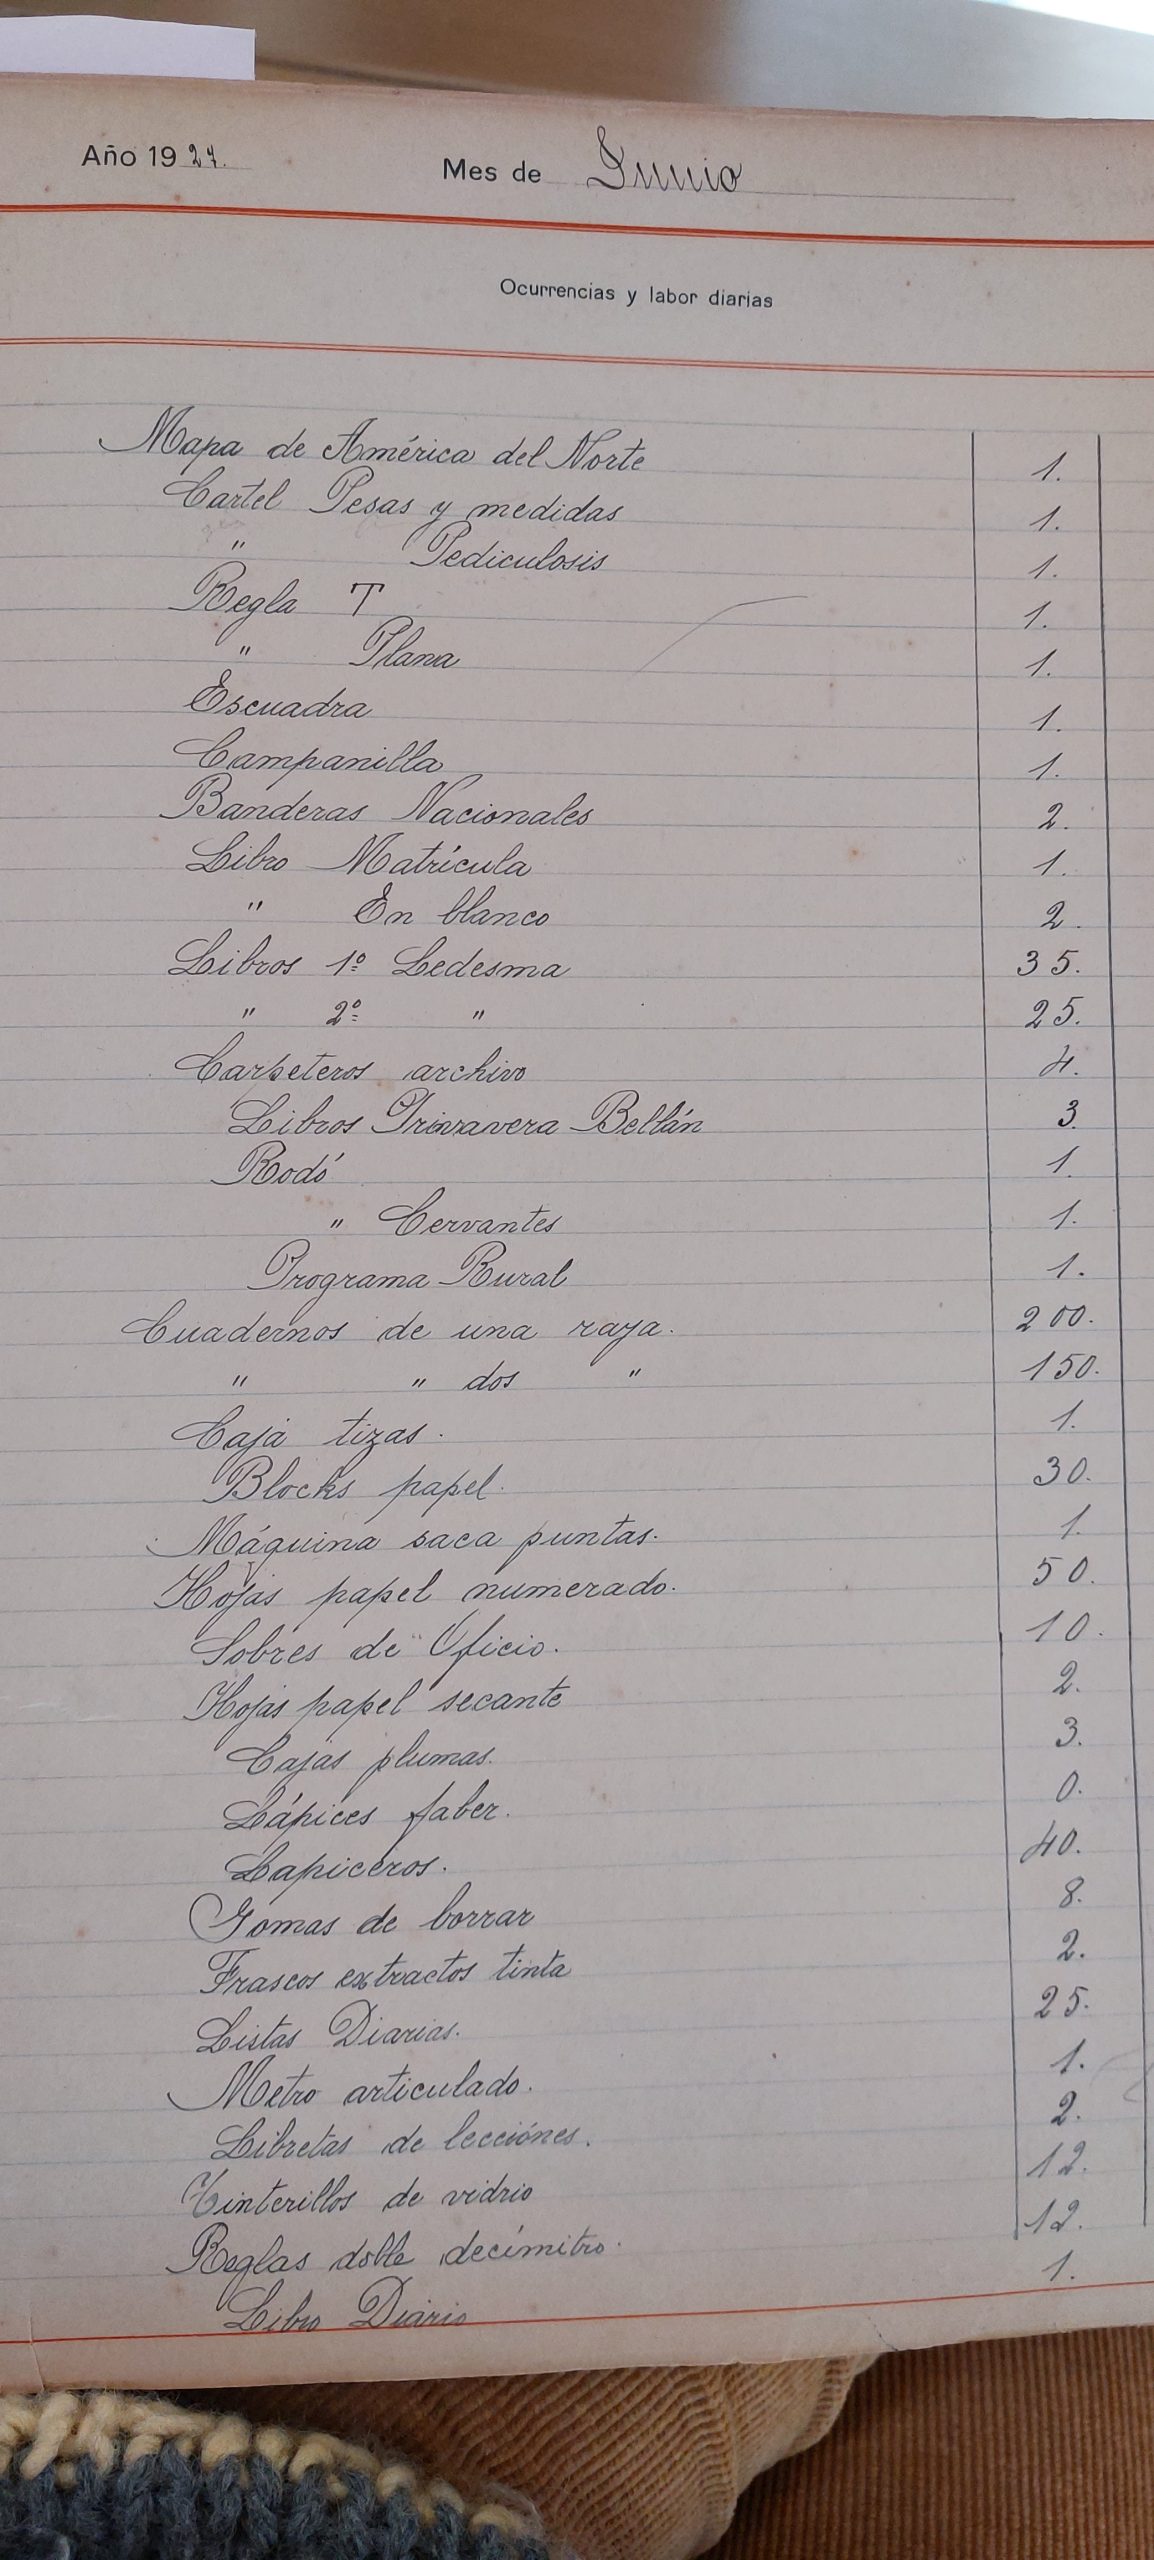 Año 1927.
Mes de Junio
Ocurrencias y labor diarias
Mapa de América del Norte 1.
Cartel Pesas y medidas 1.
" Pediculosis 1.
Regla T 1.
" Plana 1.
Escuadra 1.
Campanilla 1.
Banderas Nacionales 2.
Libro Matrícula 1.
" En blanco 2.
Libros 1º Ledesma 35.
" 2º " 25.
Carpeteros archivo 4.
Libros Primavera Bellán 3.
Rodó 1.
" Cervantes 1.
Programa Rural 1.
Cuadernos de una raya. 200.
" " dos " 150.
Caja tizas. 1.
Blocks papel. 30.
Máquina saca puntas. 1.
Hojas papel numerado. 50.
Sobres de Oficio. 10.
Hojas papel secante 2.
Cajas plumas. 3.
Lápices faber. 0.
Lapiceros. 40.
Gomas de borrar 8.
Frascos extractos tinta 2.
Listas Diarias. 25.
Metro articulado. 1.
Libretas de lecciónes. 2.
Tinterillos de vidrio 12.
Reglas doble decímitro. 12.
Libro Diario 1.